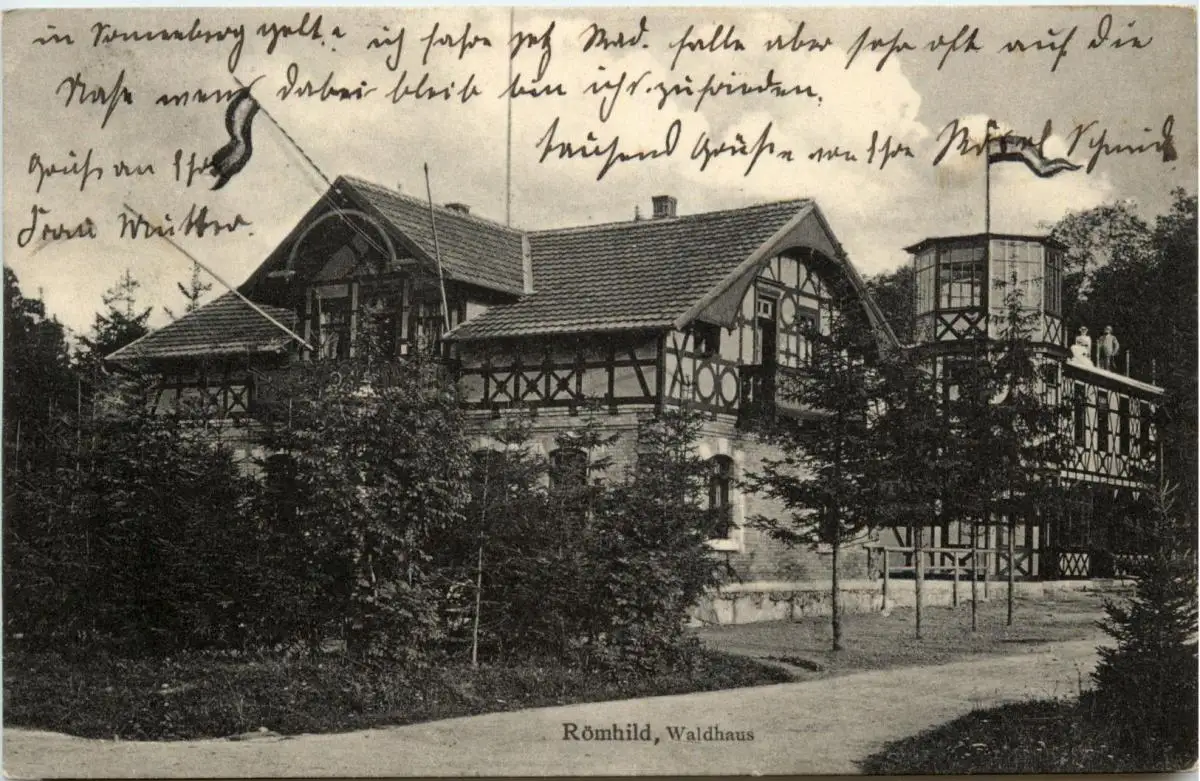 in Sonneberg geht.e ich fahre jetz Rad. falle aber sehr oft auf die
Nase wenn dabei bleib bin ich zufrieden.
tausend Grüße von Ihre
Gruß an Ihre
Frau Mutter.
Römhild, Waldhaus